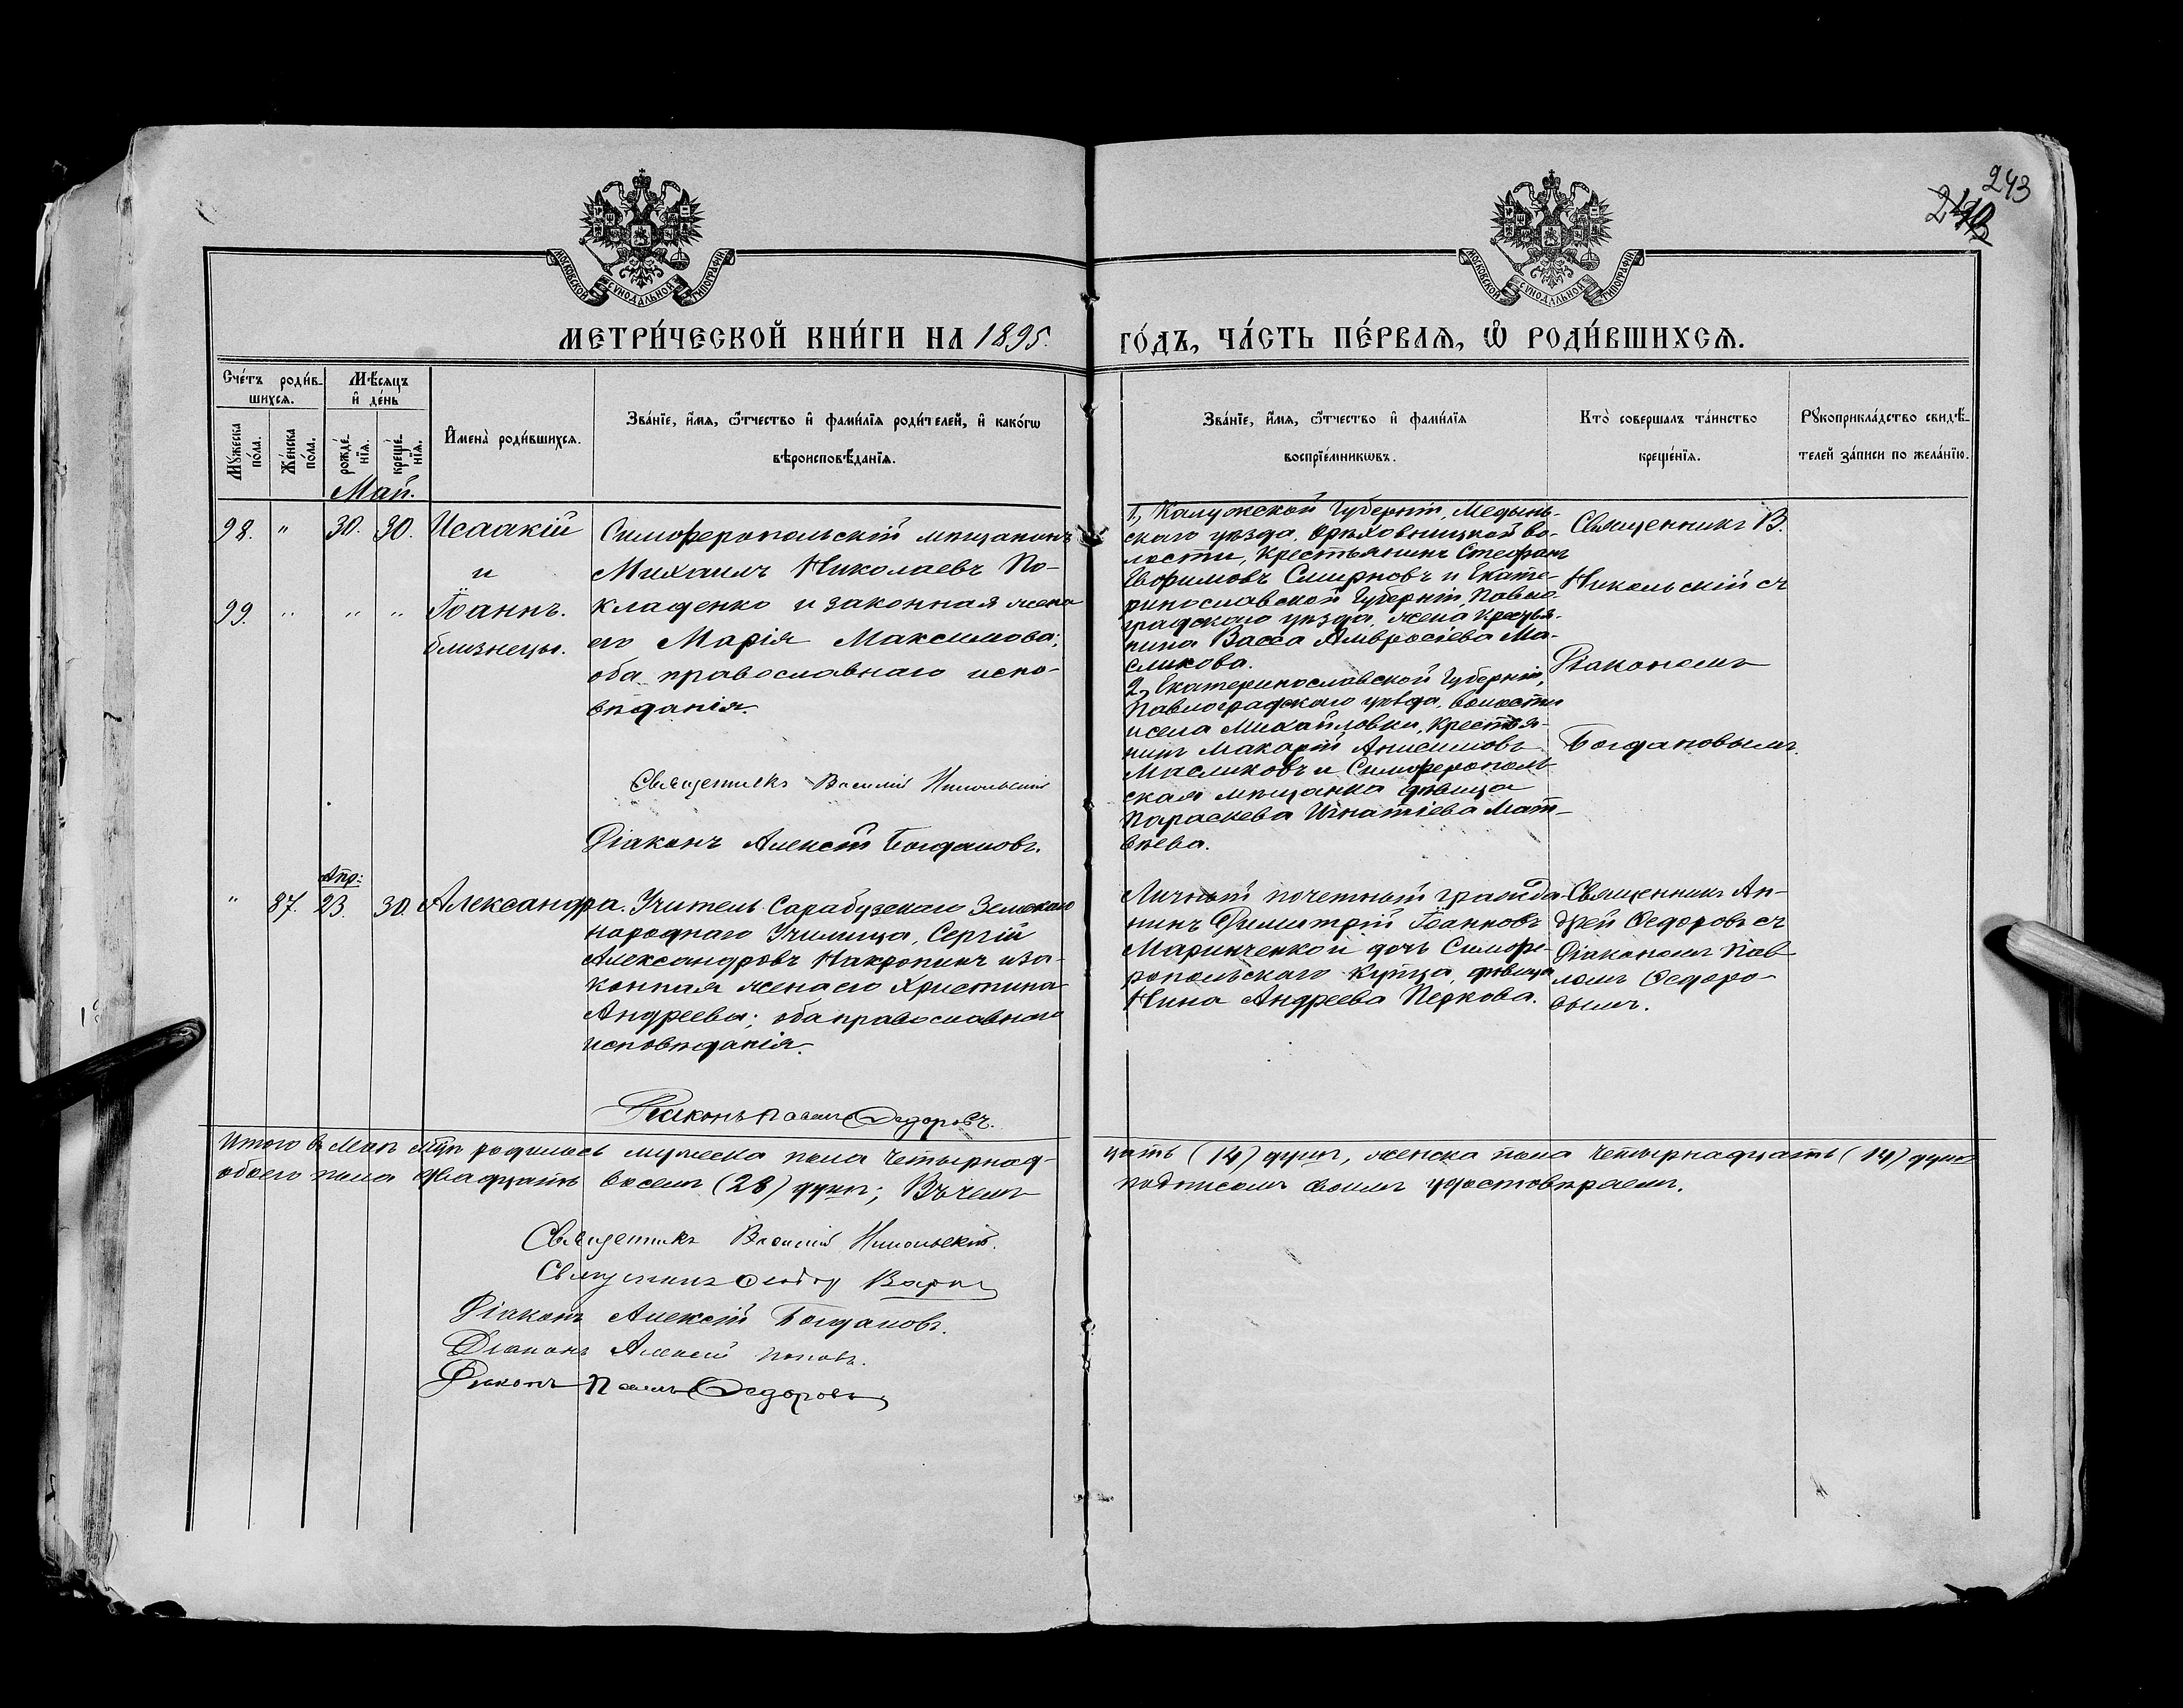 243
МОСКОВСКОЙ СУНОДАЛЬНОЙ ТИПОГРАФІИ
МОСКОВСКОЙ СУНОДАЛЬНОЙ ТИПОГРАФІИ
МЕТРИ́ЧЕСКОЙ КНИ́ГИ НА 1895.
ГО́ДЪ, ЧА́СТЬ ПЕ́РВАЯ, Ѡ РОДИ́ВШИХСЯ.
Сче́тъ роди́в-
шихся.
Мѣ́сяцъ
и де́нь
Му́жеска по́ла.
Же́нска по́ла.
рожде́нія.
креще́нія.
Имена̀ роди́вшихся.
Зва́ніе, и́мя, ѻ́тчество и фами́лія роди́телей, и како́гѡ
вѣроисповѣ́данія.
Зва́ніе, и́мя, ѻ́тчество и фами́лія
воспріе́мникѡвъ.
Кто̀ совершалъ та́инство
креще́нія.
Рукоприкла́дство свидѣ́-
телей за́писи по жела́нію.
Май.
98. " 30. 30. Исаакій
и
99. " " " Іоаннъ.
близнецы.
Симферопольскій мѣщанинъ
Михаилъ Николаевъ По-
кладенко и законная жена
его Марія Максимова;
оба православнаго испо-
вѣданія.
Священникъ Василій Никольскій
Діаконъ Алексій Богдановъ.
1, Калужской Губерніи, Медынь-
скаго уѣзда, Орѣховницкой во-
лости, Крестьянинъ Стефанъ
Евфимовъ Смирновъ и Екате-
ринославской Губерніи, Павло-
градскаго уѣзда, жена крестья-
нина Васса Амвросіева Ма-
сликова.
2, Екатеринославской Губерніи,
Павлоградскаго уѣзда, волости
и села Михайловки, Крестья-
нинъ Макарій Анисимовъ
Масликовъ и Симферополь-
ская мѣщанка дѣвица
Параскева Игнатіева Мат-
вѣева.
Священникъ В.
Никольскій съ
Діакономъ
Богдановымъ.
Апр:
" 87. 23. 30. Александра.
Учитель Сарабузскаго Земскаго
народнаго Училища, Сергій
Александровъ Накропинъ и за-
конная жена его Христина
Андреева; оба православнаго
исповѣданія.
Діаконъ Павелъ Ѳедоровъ.
Личный почетный гражда-
нинъ Димитрій Іоанновъ
Маринченко и дочь Симфе-
ропольскаго купца, дѣвица
Нина Андреева Перкова.
Священникъ Ан-
дрей Ѳедоровъ съ
Діакономъ Пав-
ломъ Ѳедоро-
вымъ.
Итого въ Маѣ мцѣ родилось мужеска пола четырнад-
цать (14) душъ, женска пола четырнадцать (14) душъ
обоего пола двадцать восемь (28) душъ; Въ чемъ
подписомъ своимъ удостовѣряемъ.
Священникъ Василій Никольскій.
Священникъ
Діаконъ Алексій Богдановъ.
Діаконъ Алексій Поповъ.
Діаконъ Павелъ Ѳедоровъ